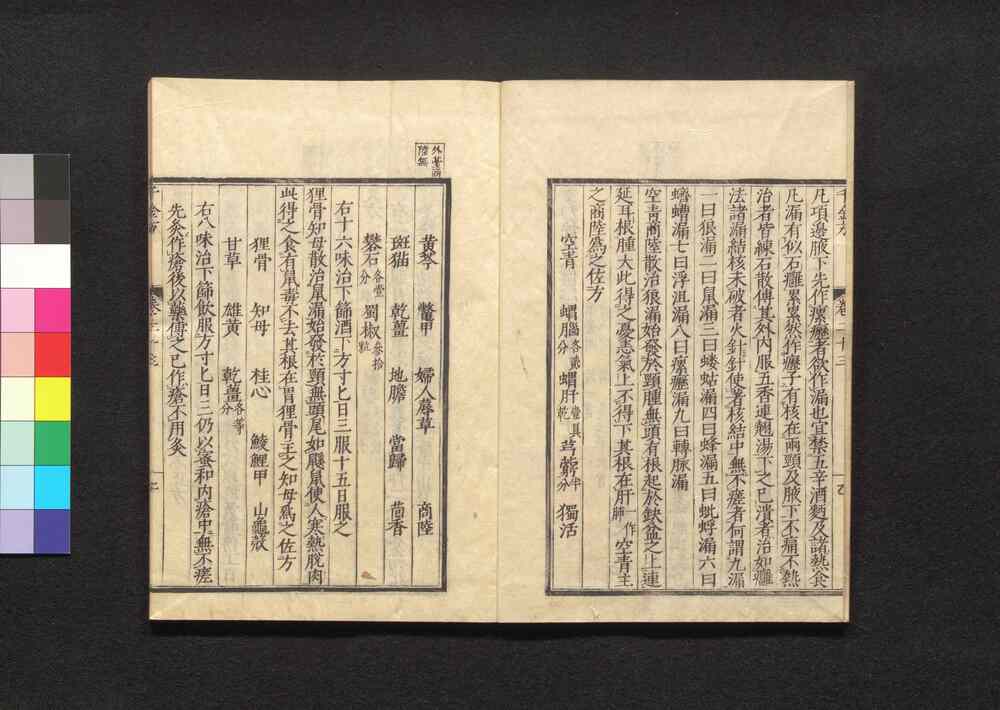 凡項邊腋下先作瘰癧者欲作漏也宜禁五辛酒麪及諸熱食
凡漏有似石癰累累然作癧子有核在兩頸及腋下不痛不熱
治者皆練石散傅其外内服五香連翹湯下之已潰者治如癰
法諸漏結核未破者火針針使著核結中無不瘥者何謂九漏
一曰狼漏二曰鼠漏三曰螻蛄漏四曰蜂漏五曰蚍蜉漏六曰
蠐螬漏七曰浮沮漏八曰瘰癧漏九曰轉脉漏
空青商陸散治狼漏始發於頸腫無頭有根起於缺盆之上連
延耳根腫大此得之憂恚氣上不得下其根在肝一作肺空青主
之商陸爲之佐方
空青 蝟腦各貳分 蝟肝壹具乾 芎藭半分 獨活
外臺商陸無
黃芩 鼈甲 婦人蓐草 商陸
斑猫 乾薑 地膽 當歸 茴香
礬石各壹分 蜀椒叁拾粒
右十六味治下篩酒下方寸匕日三服十五日服之
狸骨知母散治鼠漏始發於頸無頭尾如鼷鼠使人寒熱脫肉
此得之食有鼠毒不去其根在胃狸骨主之知母爲之佐方
狸骨 知母 桂心 鯪鯉甲 山龜殼
甘草 雄黃 乾薑各等分
右八味治下篩飲服方寸匕日三仍以蜜和内瘡中無不瘥
先灸作瘡後以藥傅之已作瘡不用灸